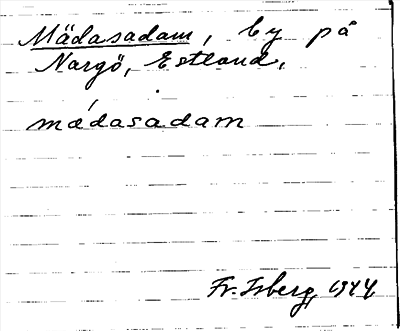 Mädasadam, by på
Nargö, Estland.
mádasadam
Fr. Isberg 1944